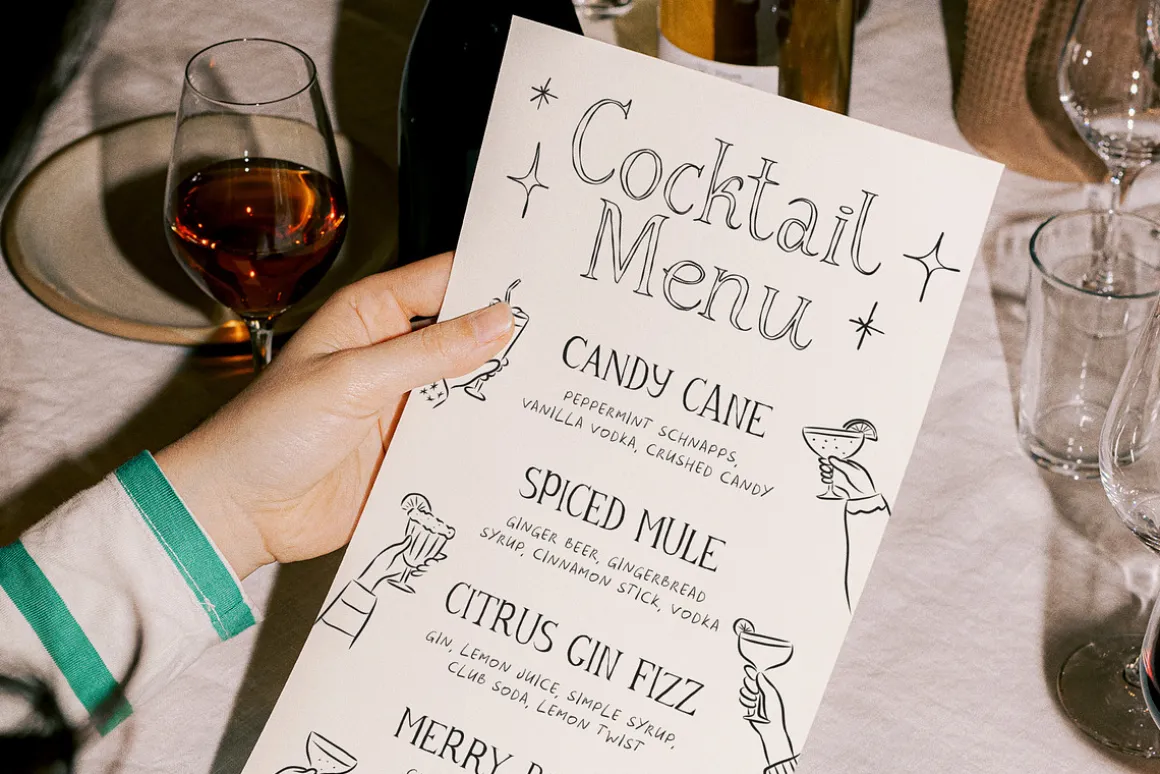 Cocktail
Menu
CANDY CANE
PEPPERMINT SCHNAPPS,
VANILLA VODKA, CRUSHED CANDY
SPICED MULE
GINGER BEER, GINGERBREAD
SYRUP, CINNAMON STICK, VODKA
CITRUS GIN FIZZ
GIN, LEMON JUICE, SIMPLE SYRUP,
CLUB SODA, LEMON TWIST
MERRY